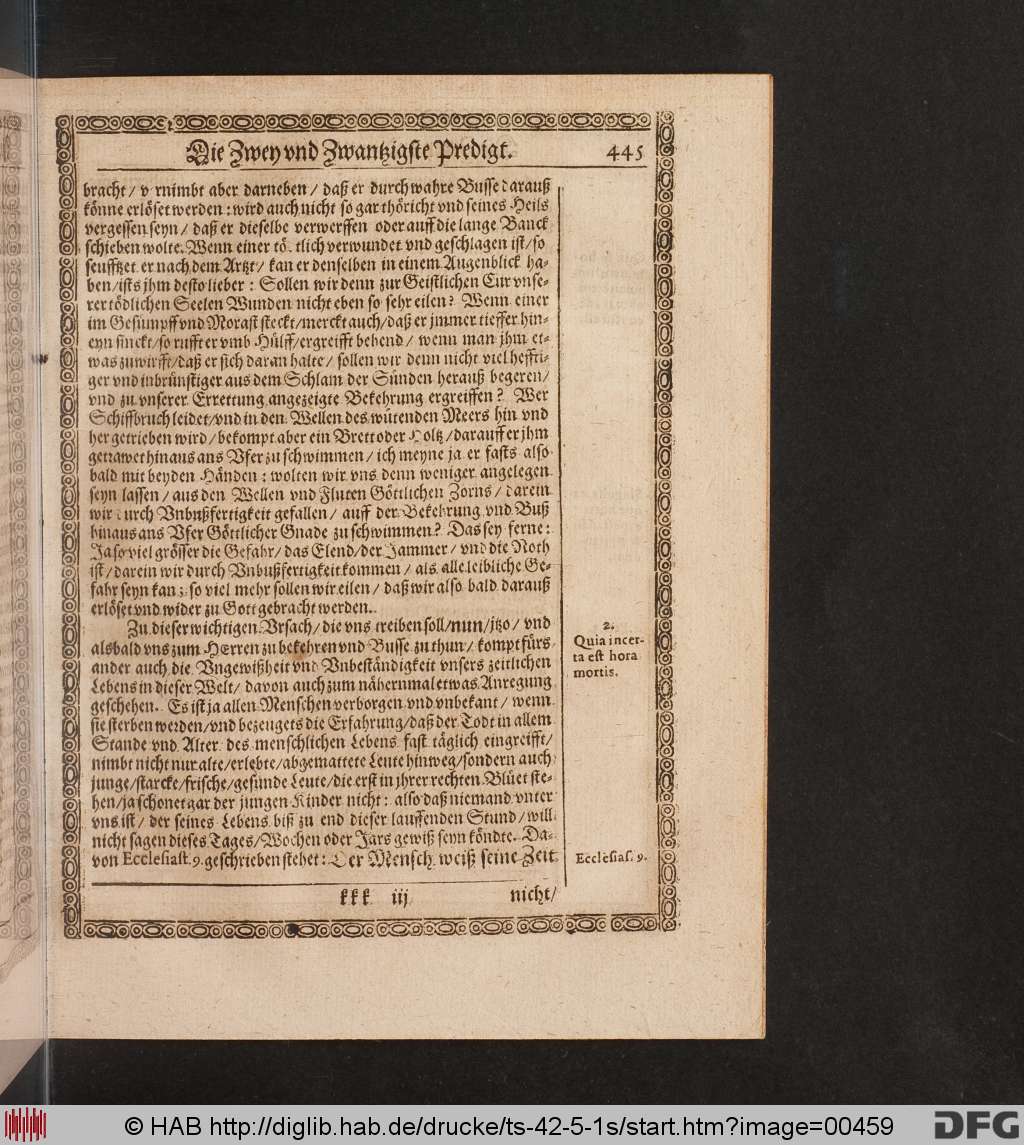 Die Zwey vnd Zwantzigste Predigt. 445
bracht / v rnimbt aber darneben / daß er durch wahre Busse darauß
könne erlöset werden : wird auch nicht so gar thöricht vnd seines Heils
vergessen seyn / daß er dieselbe verwerffen oder auff die lange Banck
schieben wolte. Wenn einer tö tlich verwundet vnd geschlagen ist / so
seufftzet er nach dem Artzt / kan er denselben in einem Augenblick ha-
ben / ists jhm desto lieber : Sollen wir denn zur Geistlichen Cur vnse-
rer tödlichen Seelen Wunden nicht eben so sehr eilen? Wenn einer
im Gesümpff vnd Morast steckt / merckt auch / daß er jmmer tieffer hin-
eyn sinckt / so rufft er vmb Hülff / ergreifft behend / wenn man jhm et-
was zuwirfft / daß er sich daran halte / sollen wir denn nicht viel hefftí-
ger vnd inbrünstiger aus dem Schlam der Sünden herauß begeren /
vnd zu vnserer Errettung angezeigte Bekehrung ergreiffen? Wer
Schiffbruch leidet / vnd in den Wellen des wütenden Meers hin vnd
her getrieben wird / bekompt aber ein Brett oder Holtz / darauff er jhm
getrawet hinaus ans Vfer zu schwimmen / ich meyne ja er fasts also
bald mit beyden Händen : wolten wir vns denn weniger angelegen
seyn lassen / aus den Wellen vnd Fluten Göttlichen Zorns / darein
wir durch Vnbußfertigkeit gefallen / auff der Bekehrung vnd Buß
hinaus ans Vfer Göttlicher Gnade zu schwimmen? Das sey ferne :
Ja so viel grösser die Gefahr / das Elend / der Jammer / vnd die Noth
ist / darein wir durch Vnbußfertigkeit kommen / als alle leibliche Ge-
fahr seyn kan : so viel mehr sollen wir eilen / daß wir also bald darauß
erlöset vnd wider zu Gott gebracht werden.
Zu dieser wichtigen Vrsach / die vns treiben soll / nun / jtzo / vnd
alsbald vns zum Herren zu bekehren vnd Busse zu thun / kompt fürs
ander auch die Vngewißheit vnd Vnbeständigkeit vnsers zeitlichen
Lebens in dieser Welt / davon auch zum nähernmal etwas Anregung
geschehen. Es ist ja allen Menschen verborgen vnd vnbekant / wenn
sie sterben werden / vnd bezeugets die Erfahrung / daß der Todt in allem
Stande vnd Alter des menschlichen Lebens fast täglich eingreifft /
nimbt nicht nur alte / erlebte / abgemattete Leute hinweg / sondern auch
junge / starcke / frische / gesunde Leute / die erst in jhrer rechten Blüet ste-
hen / ja schonet gar der jungen Kinder nicht : also daß niemand vnter
vns ist / der seines Lebens biß zu end dieser lauffenden Stund / will
nicht sagen dieses Tages / Wochen oder Jars gewiß seyn köndte. Da-
von Ecclesiast. 9. geschrieben stehet : Der Mensch weiß seine Zeit
kkk iij nicht /
2.
Quia incer-
ta est hora
mortis.
Ecclesias. 9.
© HAB http://diglib.hab.de/drucke/ts-42-5-1s/start.htm?image=00459
DFG